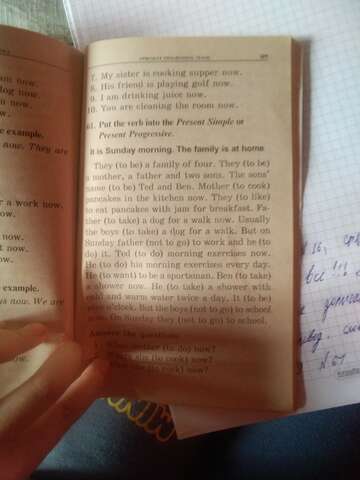 PRESENT PROGRESSIVE TENSE
7. My sister is cooking supper now.
8. His friend is playing golf now.
9. I am drinking juice now.
10. You are cleaning the room now.
61. Put the verb into the Present Simple or
Present Progressive.
It is Sunday morning. The family is at home
They (to be) a family of four. They (to be)
a mother, a father and two sons. The sons'
name (to be) Ted and Ben. Mother (to cook)
pancakes in the kitchen now. They (to like)
to eat pancakes with jam for breakfast. Fa-
ther (to take) a dog for a walk now. Usually
the boys (to take) a dog for a walk. But on
Sunday father (not to go) to work and he (to
do) it. Ted (to do) morning exercises now.
He (to do) his morning exercises every day.
He (to want) to be a sportsman. Ben (to take)
a shower now. He (to take) a shower with
cold and warm water twice a day. It (to be)
o'clock. But the boys (not to go) to school
now. On Sunday they (not to go) to school.
Answer the questions.
mother (to do) now?
she (to cook) now?
(to cook) now?
now.
now.
now.
e example.
now. They are
work now.
now.
now.
now.
example.
now. We are